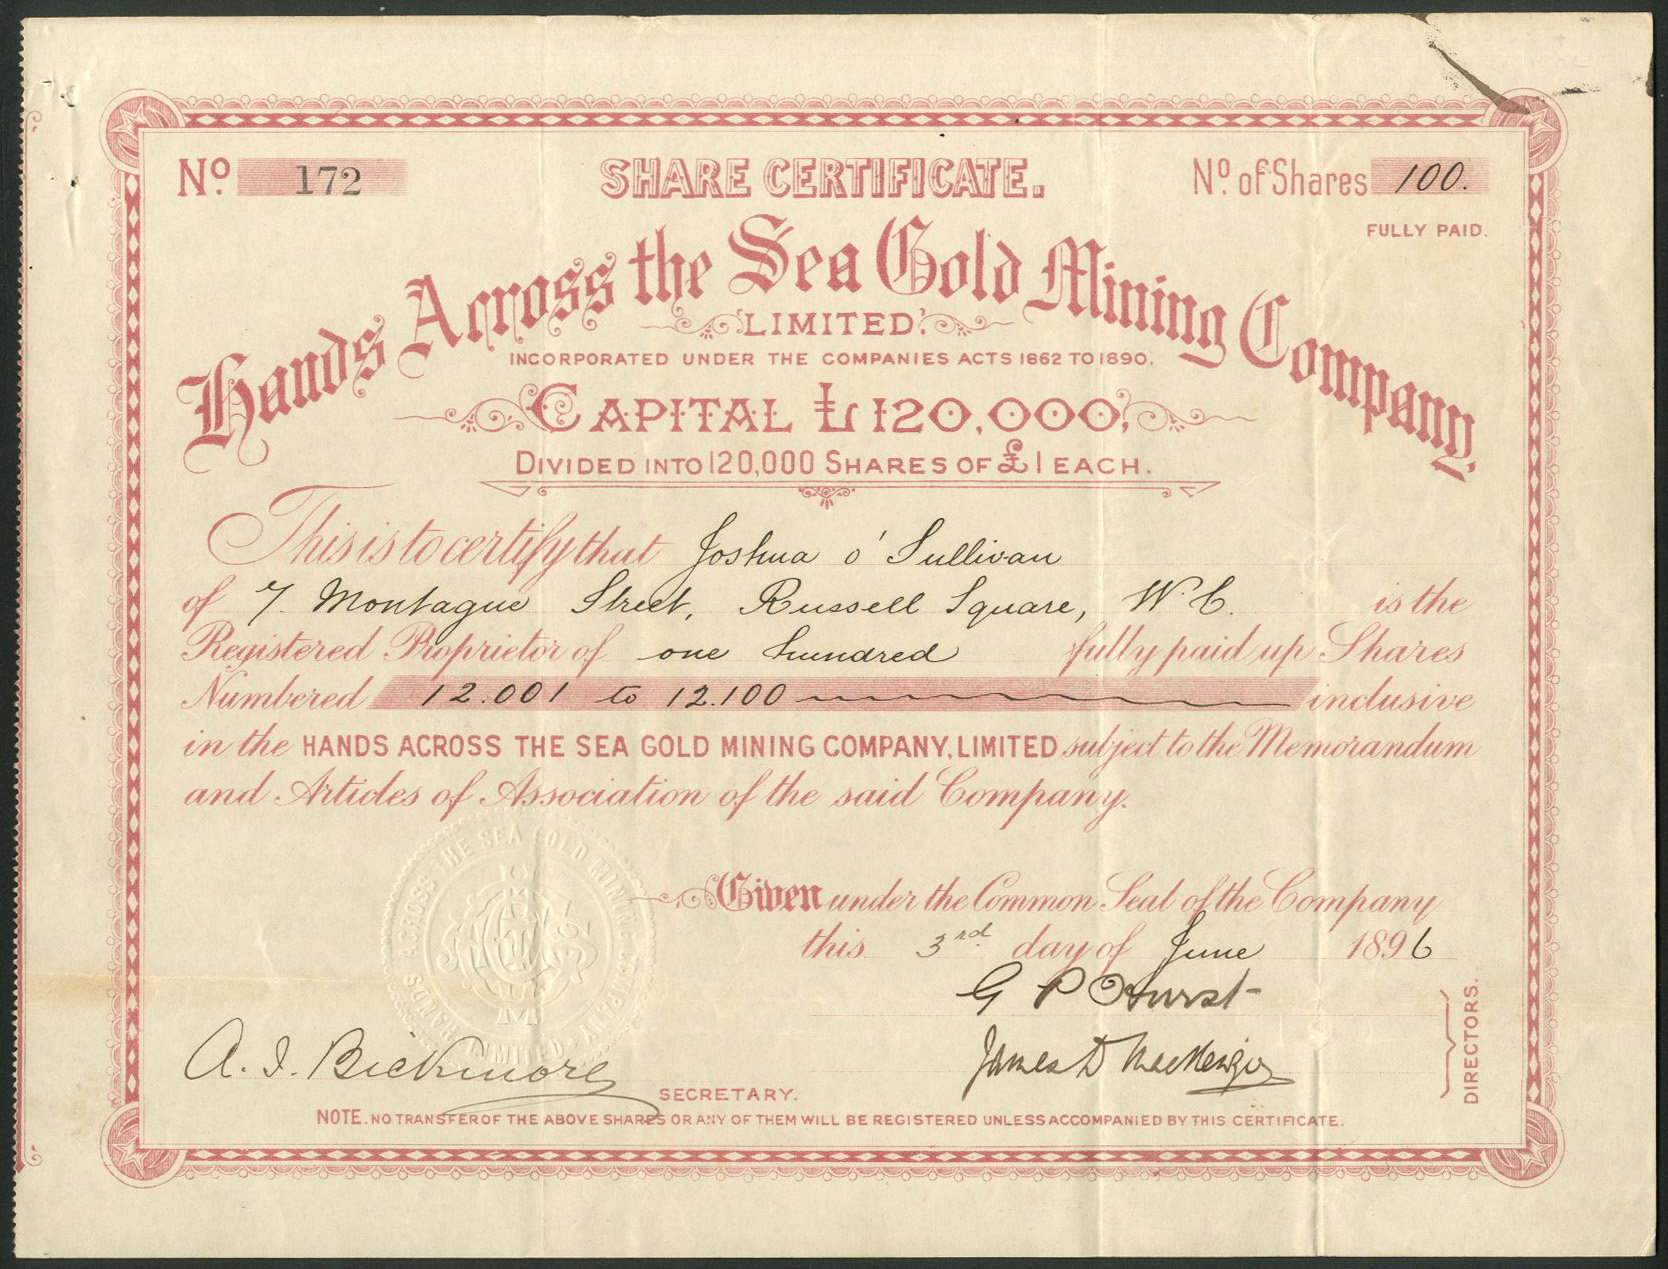 No. 172
SHARE CERTIFICATE.
No. of Shares 100.
FULLY PAID.
Hands Across the Sea Gold Mining Company,
LIMITED.
INCORPORATED UNDER THE COMPANIES ACTS 1862 TO 1890.
CAPITAL £120,000,
DIVIDED INTO 120,000 SHARES OF £1 EACH.
This is to certify that Joshua O'Sullivan
of 7. Montague Street, Russell Square, W.C. is the
Registered Proprietor of one hundred fully paid up Shares
Numbered 12.001 to 12.100 inclusive
in the HANDS ACROSS THE SEA GOLD MINING COMPANY, LIMITED subject to the Memorandum
and Articles of Association of the said Company.
HANDS ACROSS THE SEA GOLD MINING COMPANY LIMITED
Given under the Common Seal of the Company
this 3rd day of June 1896
G P Hurst
James D MacKenzie
DIRECTORS.
A. J. Bickmore
SECRETARY.
NOTE. NO TRANSFER OF THE ABOVE SHARES OR ANY OF THEM WILL BE REGISTERED UNLESS ACCOMPANIED BY THIS CERTIFICATE.